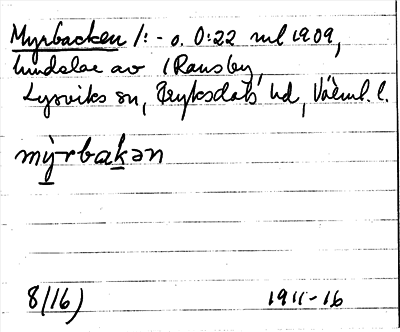 Myrbacken /: - o. 0:22 mtl 1909,
lindelse av (Ransby,
Lysviks sn, Fryksdals hd, Värml. l.
mỳrbak̲ən
8/16) 1911-16